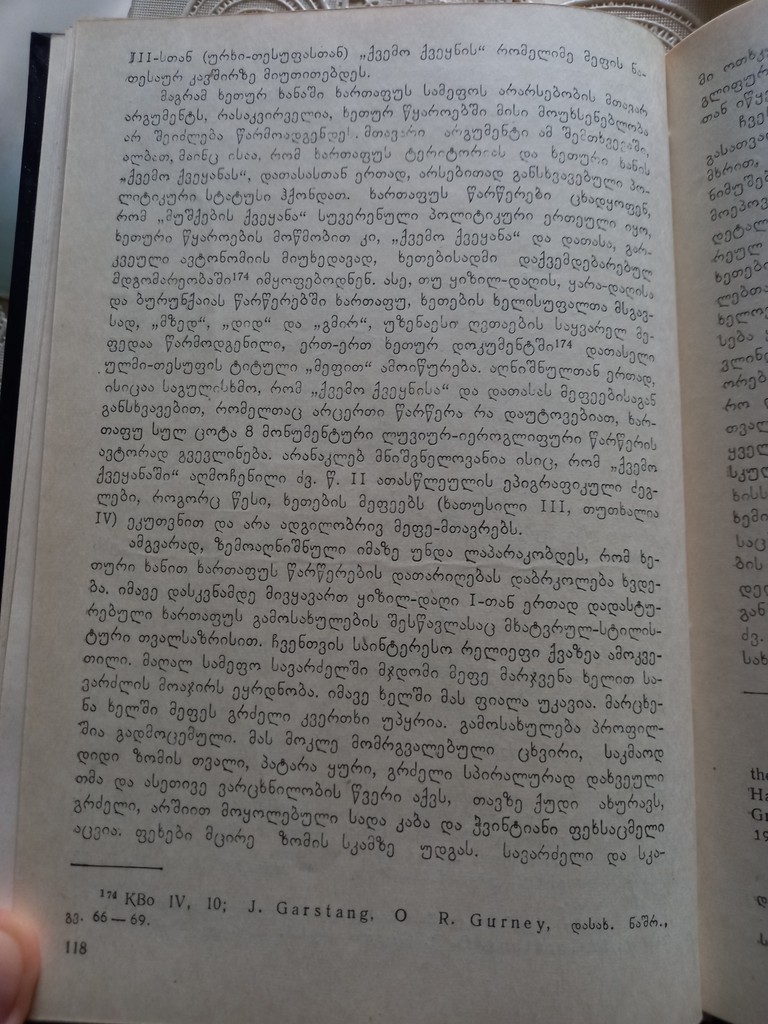 III-სთან (ურხი-თესუფასთან) „ქვემო ქვეყნის“ რომელიმე მეფის ნა-
თესაურ კავშირზე მიუთითებდეს.
მაგრამ ხეთურ ხანაში ხართაფუს სამეფოს არარსებობის მთავარ
არგუმენტს, რასაკვირველია, ხეთურ წყაროებში მისი მოუხსენებლობა
არ შეიძლება წარმოადგენდეს. მთავარი არგუმენტი ამ შემთხვევაში,
ალბათ, მაინც ისაა, რომ ხართაფუს ტერიტორიას და ხეთური ხანის
„ქვემო ქვეყანას“, დათასასთან ერთად, არსებითად განსხვავებული პო-
ლიტიკური სტატუსი ჰქონდათ. ხართაფუს წარწერები ცხადყოფენ,
რომ „მუშქების ქვეყანა“ სუვერენული პოლიტიკური ერთეული იყო,
ხეთური წყაროების მოწმობით კი, „ქვემო ქვეყანა“ და დათასა, გარ-
კვეული ავტონომიის მიუხედავად, ხეთებისადმი დაქვემდებარებულ
მდგომარეობაში174 იმყოფებოდნენ. ასე, თუ ყიზილ-დაღის, ყარა-დაღისა
და ბურუნქაიას წარწერებში ხართაფუ, ხეთების ხელისუფალთა მსგავ-
სად, „მზედ“, „დიდ“ და „გმირ“, უზენაესი ღვთაების საყვარელ მე-
ფედაა წარმოდგენილი, ერთ-ერთ ხეთურ დოკუმენტში174 დათასელი
ულმი-თესუფის ტიტული „მეფით“ ამოიწურება. აღნიშნულთან ერთად,
ისიცაა საგულისხმო, რომ „ქვემო ქვეყნისა“ და დათასას მეფეებისაგან
განსხვავებით, რომელთაც არცერთი წარწერა რა დაუტოვებიათ, ხარ-
თაფუ სულ ცოტა 8 მონუმენტური ლუვიურ-იეროგლიფური წარწერის
ავტორად გვევლინება. არანაკლებ მნიშვნელოვანია ისიც, რომ „ქვემო
ქვეყანაში“ აღმოჩენილი ძვ. წ. II ათასწლეულის ეპიგრაფიკული ძეგ-
ლები, როგორც წესი, ხეთების მეფეებს (ხათუსილი III, თუთხალია
IV) ეკუთვნით და არა ადგილობრივ მეფე-მთავრებს.
ამგვარად, ზემოაღნიშნული იმაზე უნდა ლაპარაკობდეს, რომ ხე-
თური ხანით ხართაფუს წარწერების დათარიღებას დაბრკოლება ხვდე-
ბა. იმავე დასკვნამდე მივყავართ ყიზილ-დაღი I-თან ერთად დადასტუ-
რებული ხართაფუს გამოსახულების შესწავლასაც მხატვრულ-სტილის-
ტური თვალსაზრისით. ჩვენთვის საინტერესო რელიეფი ქვაზეა ამოკვე-
თილი. მაღალ სამეფო სავარძელში მჯდომი მეფე მარჯვენა ხელით სა-
ვარძლის მოაჯირს ეყრდნობა. იმავე ხელში მას ფიალა უკავია. მარცხე-
ნა ხელში მეფეს გრძელი კვერთხი უპყრია. გამოსახულება პროფილ-
შია გადმოცემული. მას მოკლე მომრგვალებული ცხვირი, საკმაოდ
დიდი ზომის თვალი, პატარა ყური, გრძელი სპირალურად დახვეული
თმა და ასეთივე ვარცხნილობის წვერი აქვს, თავზე ქუდი ახურავს,
გრძელი, არშიით მოყოლებული სადა კაბა და ჭვინტიანი ფეხსაცმელი
აცვია. ფეხები მცირე ზომის სკამზე უდგას. სავარძელი და სკა-
174 KBo IV, 10; J. Garstang, O R. Gurney, დასახ. ნაშრ.,
გვ. 66—69.
118